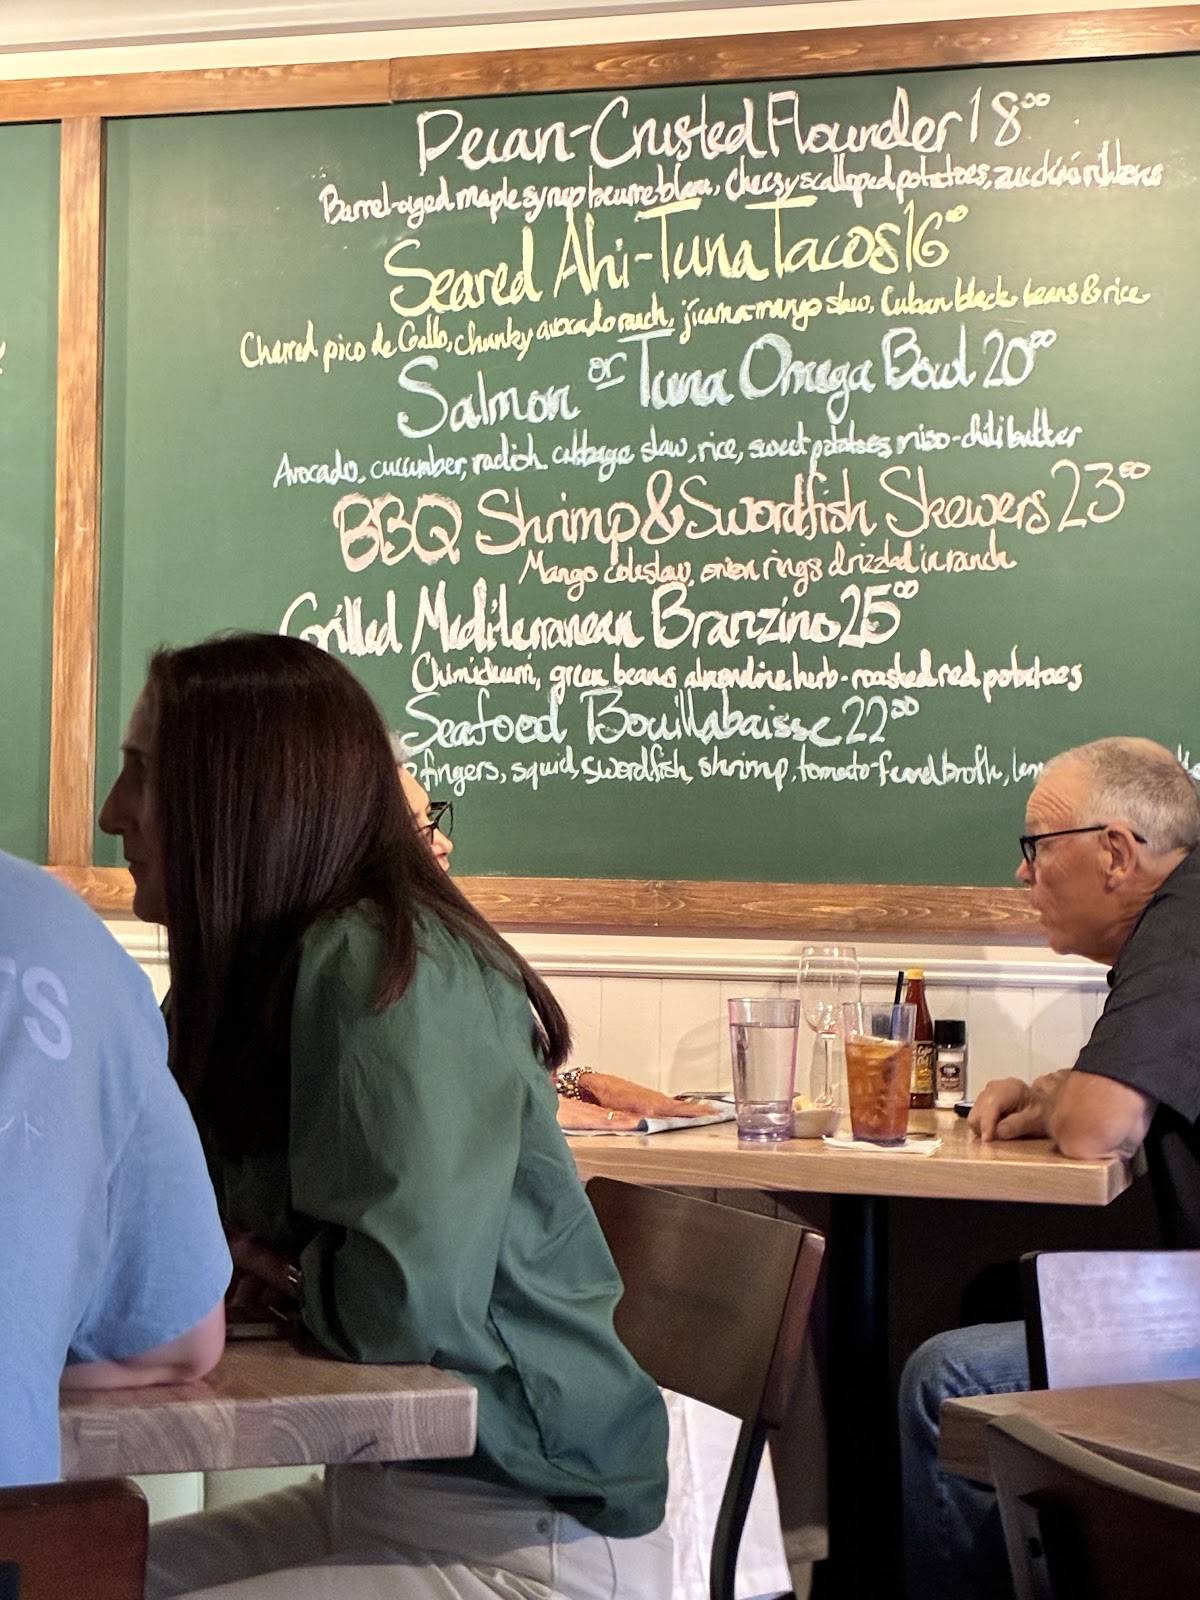 Pecan-Crusted Flounder 18⁰⁰
Barrel-aged maple syrup beurre blanc, cheesy scalloped potatoes, zucchini ribbons
Seared Ahi-Tuna Tacos 16⁰⁰
Charred pico de Gallo, chunky avocado ranch, jicama-mango slaw, Cuban black beans & rice
Salmon or Tuna Omega Bowl 20⁰⁰
Avocado, cucumber, radish, cabbage slaw, rice, sweet potatoes, miso-chili butter
BBQ Shrimp & Swordfish Skewers 23⁰⁰
Mango coleslaw, onion rings drizzled in ranch
Grilled Mediterranean Branzino 25⁰⁰
Chimichurri, green beans almondine, herb-roasted red potatoes
Seafood Bouillabaisse 22⁰⁰
fingers, squid, swordfish, shrimp, tomato-fennel broth,
TS